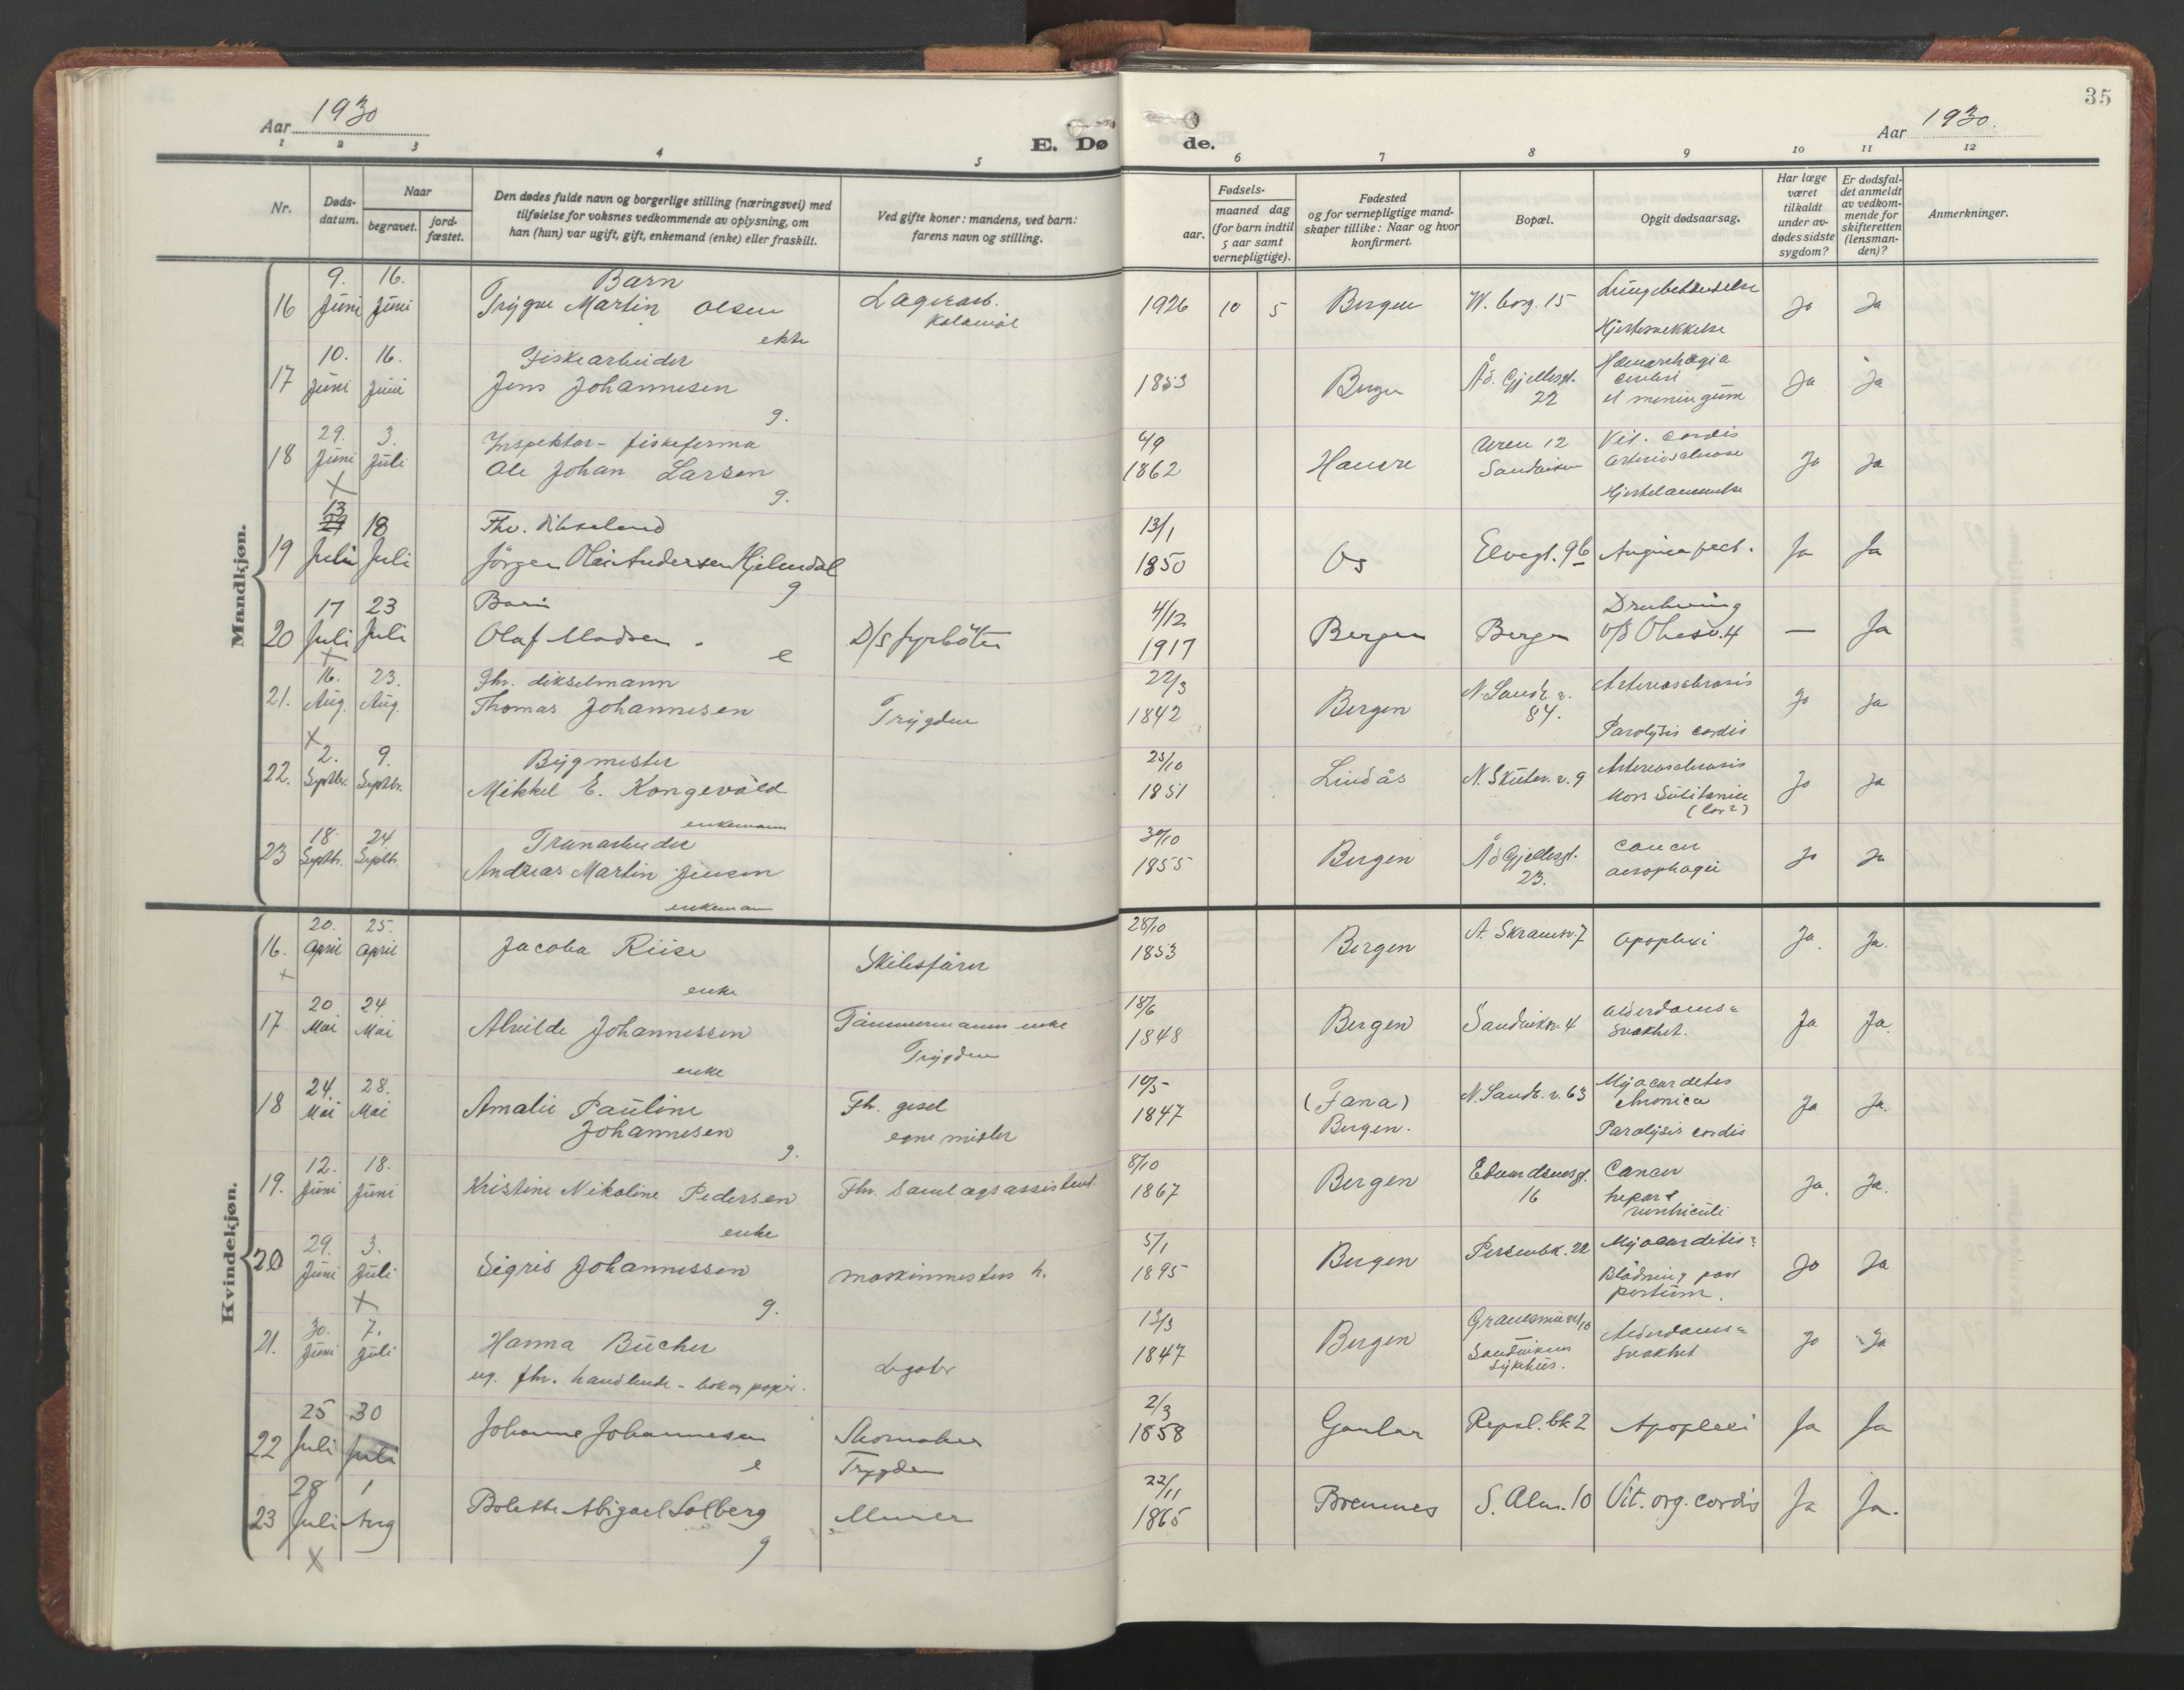 35
Aar 1930
E. Døde.
Aar 1930.
1 2 3 4 5 6 7 8 9 10 11 12
Nr.
Døds-
datum.
Naar
begravet.
jord-
fæstet.
Den dødes fulde navn og borgerlige stilling (næringsvei) med
tilføielse for voksnes vedkommende av oplysning, om
han (hun) var ugift, gift, enkemand (enke) eller fraskilt.
Ved gifte koner: mandens, ved barn:
farens navn og stilling.
Fødsels-
aar.
maaned dag
(for barn indtil
5 aar samt
vernepligtige).
Fødested
og for vernepligtige mand-
skaper tillike: Naar og hvor
konfirmert.
Bopæl.
Opgit dødsaarsag.
Har læge
været
tilkaldt
under av-
dødes sidste
sygdom?
Er dødsfal-
det anmeldt
av vedkom-
mende for
skifteretten
(lensman-
den)?
Anmerkninger.
Mandkjøn.
16 9. Juni 16. Juni Barn
Trygve Martin Olsen
ekte
Lagerarb.
Kolonial
1926 10 5 Bergen W. borg. 15 Lungebetendelse
Hjertesvekkelse
Ja Ja
17 10. Juni 16. Juni Fiskearbeider
Jens Johannesen
g.
1853 Bergen Ad. Gjellesgt.
22
Hæmorrhagia
cerebri
et meningum
Ja Ja
18 29. Juni 3. Juli Inspektør - fiskefirma
Ole Johan Larsen
g.
4/9
1862 Hamre Uren 12
Sandviken
Vit. cordis
arteriosclerose
Hjertelammelse
Ja Ja
19 13 Juli 18 Juli Fhv.
Jörgen Olai Andersen Hjelmdal
g
13/1
1850 Os Elvegt. 9b Angina pect. Ja Ja
20 17 Juli 23 Juli Barn
Olaf Madsen.
e
D/s fyrböter
4/12
1917 Bergen Bergen Drukning
v/ 4
— Ja
21. 16. Aug. 23. Aug. Fhv. dikselmann
Thomas Johannesen
Trygden
22/3
1842 Bergen N. Sandv. v.
84.
Arteriosclerosis
Paralysis cordis
Ja Ja
22. 2. Septbr. 9. Septbr. Bygmester
Mikkel E. Kongevold
enkemann
25/10
1851 Lindås N. Skutev. v. 9 Arteriosclerosis
Mors Subitanea
(Cor?)
Ja Ja
23 18. Septbr. 24. Septbr. Tranarbeider
Andreas Martin Jensen
enkemann
30/10
1855 Bergen Ad Gjellesgt.
23.
Cancer
oesophagei
Ja Ja
Kvindekjøn.
16. 20. April 25. April Jacoba Riise
enke
Skibsfører
28/10
1853 Bergen A. Skramsv. 7 Apoplexi Ja. Ja.
17 20 Mai 24. Mai Alvilde Johannessen
enke
Tømmermanns enke
Trygden
18/6
1848 Bergen Sandviksv. 4 Alderdoms=
svakhet.
Ja Ja.
18 24. Mai 28. Mai Amalie Pauline
Johannesen
g.
Fh. gesel
egne mister
10/5
1847 (Fana)
Bergen.
N. Sandv. v. 63 Myocardites
chronica
Paralysis cordis
Ja Ja.
19. 12. Juni 18. Juni Kristine Nikoline Pedersen
enke
Fhv. Samlagsassistent.
8/10
1867 Bergen Edvardsensgt.
16
Cancer
hepar &
ventriculi
Ja. Ja.
20 29. Juni 3. Juli Sigris Johannessen
g.
maskinmesters h.
5/1
1895 Bergen Persenbk. 22 Myocarditis?
Blødning post
partum.
Ja Ja
21. 30. Juni 7. Juli Hanna Bücher
ug. fhv. handlende - bok og papir.
Legater
13/3
1847 Bergen
Sandvikens
Sykhus.
Alderdoms=
svakhet
Ja Ja
22 25 Juli 30 Juli Johanne Johannesen
e
Skomaker
Trygden
2/3
1858 Gaular Repsl. bk 2 Apoplexi Ja Ja
23 28 Juli 1 Aug Bolette Abigael Solberg
g
Murer
22/11
1865 Bremnes S. Alm. 10 Vit. org. cordis Ja Ja.